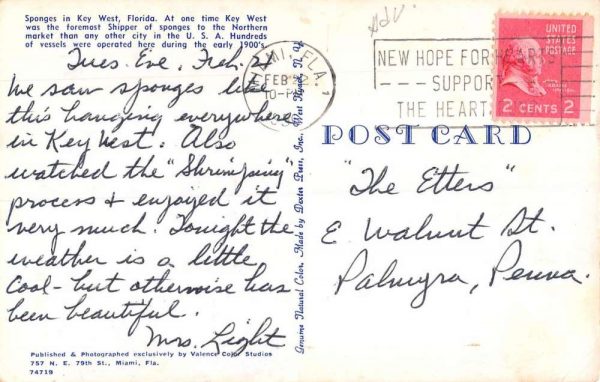 Sponges in Key West, Florida. At one time Key West
was the foremost Shipper of sponges to the Northern
market than any other city in the U. S. A. Hundreds
of vessels were operated here during the early 1900's.
Tues. Eve, Feb. 22
We saw sponges like
this hanging everywhere
in Key West. Also
watched the "Shrimping"
process & enjoyed it
very much. Tonight the
weather is a little
cool - but otherwise has
been beautiful.
Mrs. Light
Published & Photographed exclusively by Valence Color Studios
757 N. E. 79th St., Miami, Fla.
74719
Genuine Natural Color, Made by Dexter Press, Inc., West Nyack, N. Y.
Adv.
MIAMI, FLA.
FEB
10-PM
NEW HOPE FOR HEARTS
SUPPORT
THE HEART
UNITED STATES
POSTAGE
2 CENTS 2
POST CARD
"The Etters"
E Walnut St.
Palmyra, Penna.